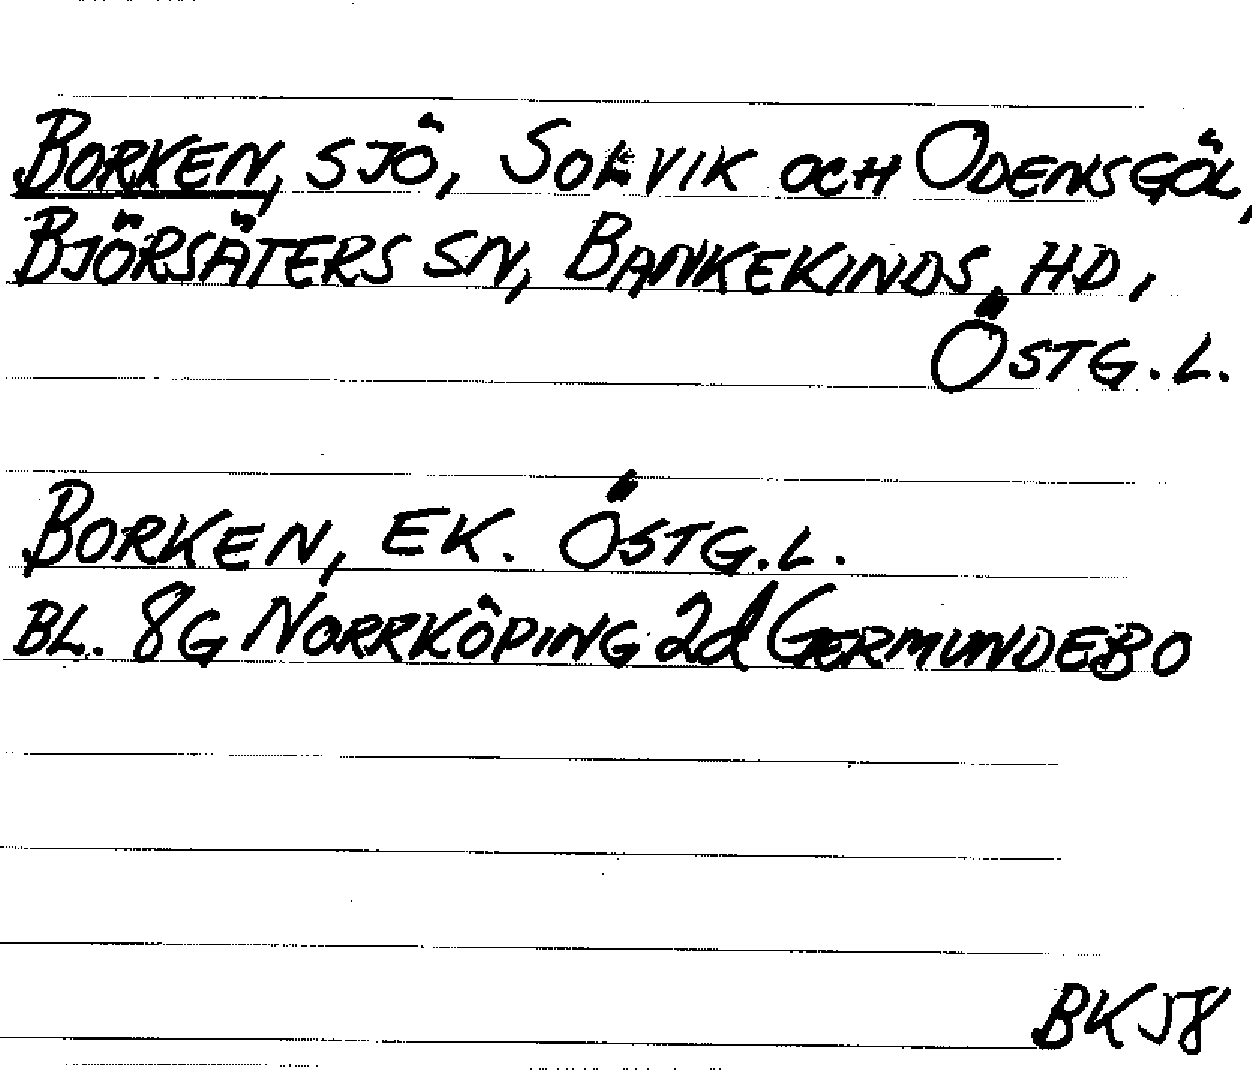 BORKEN, SJÖ, SOLVIK OCH ODENSGÖL,
BJÖRSÄTERS SN, BANKEKINDS HD,
ÖSTG.L.
BORKEN, EK. ÖSTG.L.
BL. 8G NORRKÖPING 2d GERMUNDEBO
BKJ8